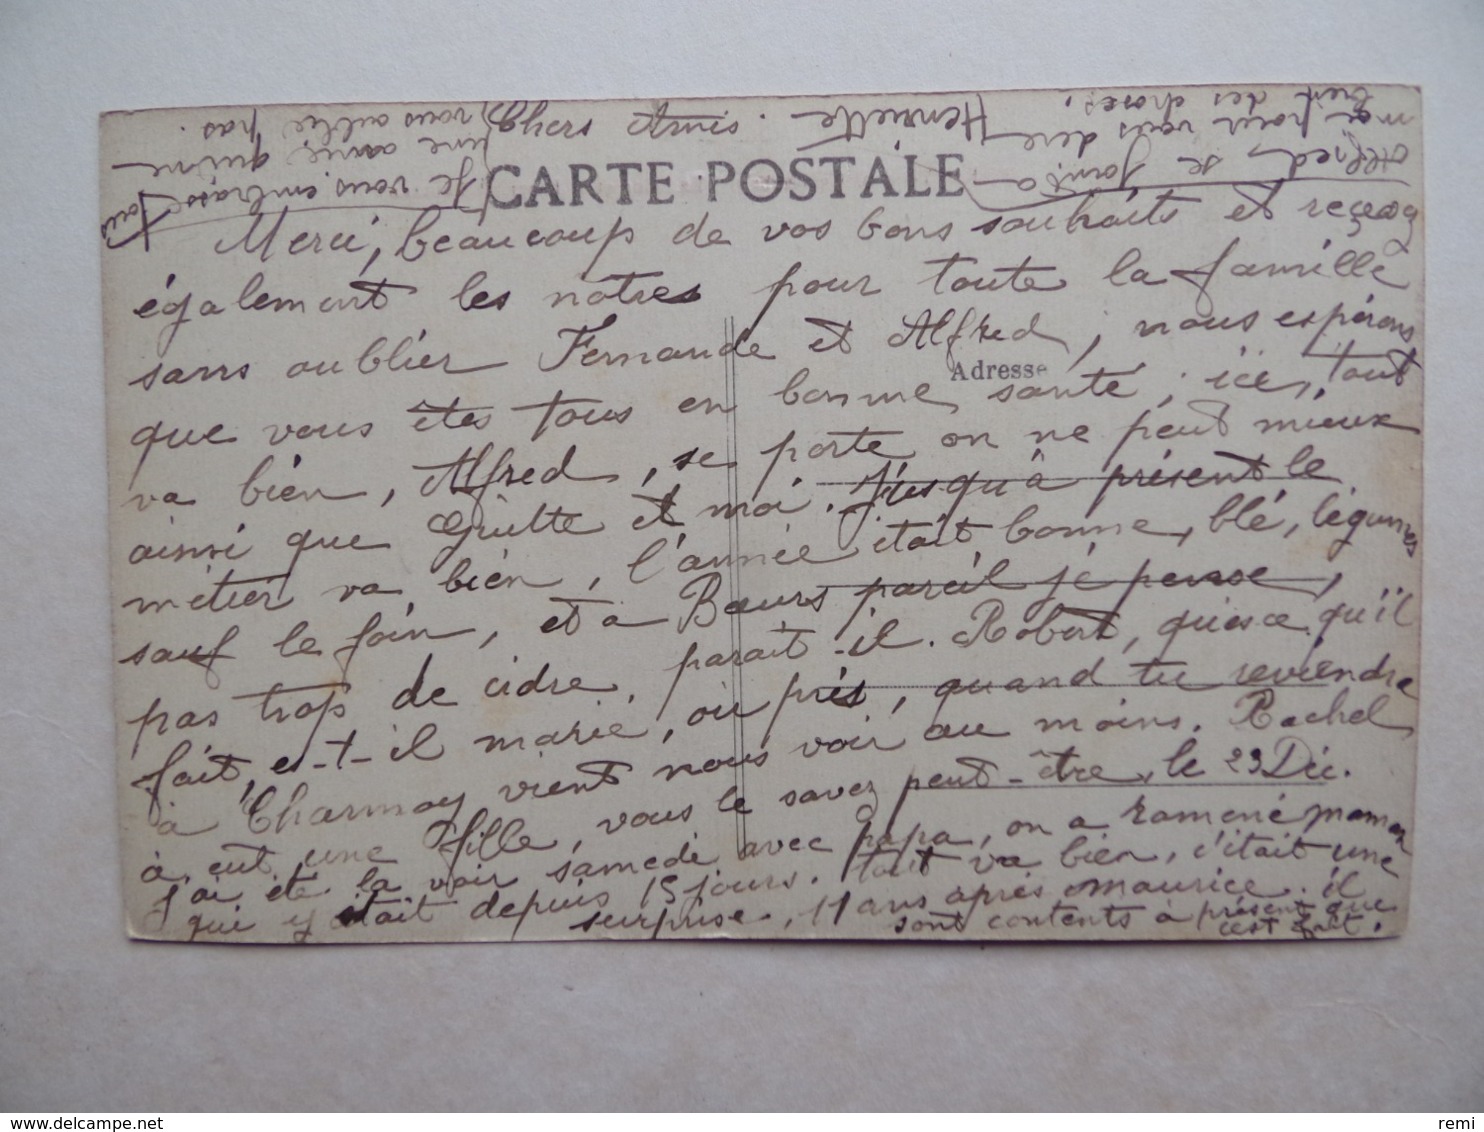 Chers Amis.
CARTE POSTALE
Merci, beaucoup de vos bons souhaits et reçevez
également les nôtres pour toute la famille
sans oublier Fernande et Alfred, nous espérons
Adresse
que vous êtes tous en bonne santé, ici, tout
va bien, Alfred, se porte on ne peut mieux
ainsi que Guitte et moi. Jusqu'à présent le
métier va bien, l'année était bonne, blé, légumes
sauf le foin, et a Bours pareil je pense,
pas trop de cidre, parait-il. Robert, quesce qu'il
fait, est-t-il marié, où près, quand tu reviendra
à Charmoy vient nous voir au moins. Rachel
à eut une fille, vous le savez peut-être, le 23 Déc.
j'ai été la voir samedi avec papa, on a ramené maman
qui y était depuis 15 jours. tout va bien, c'était une
surprise, 11 ans après Maurice. il
sont contents à présent que
cest fait.
Alfred, se joint à
moi pour vous dire
bien des choses,
Henriette
Je vous embrasse tous
une amie qui ne
vous oublie pas.
remi
© delcampe.net